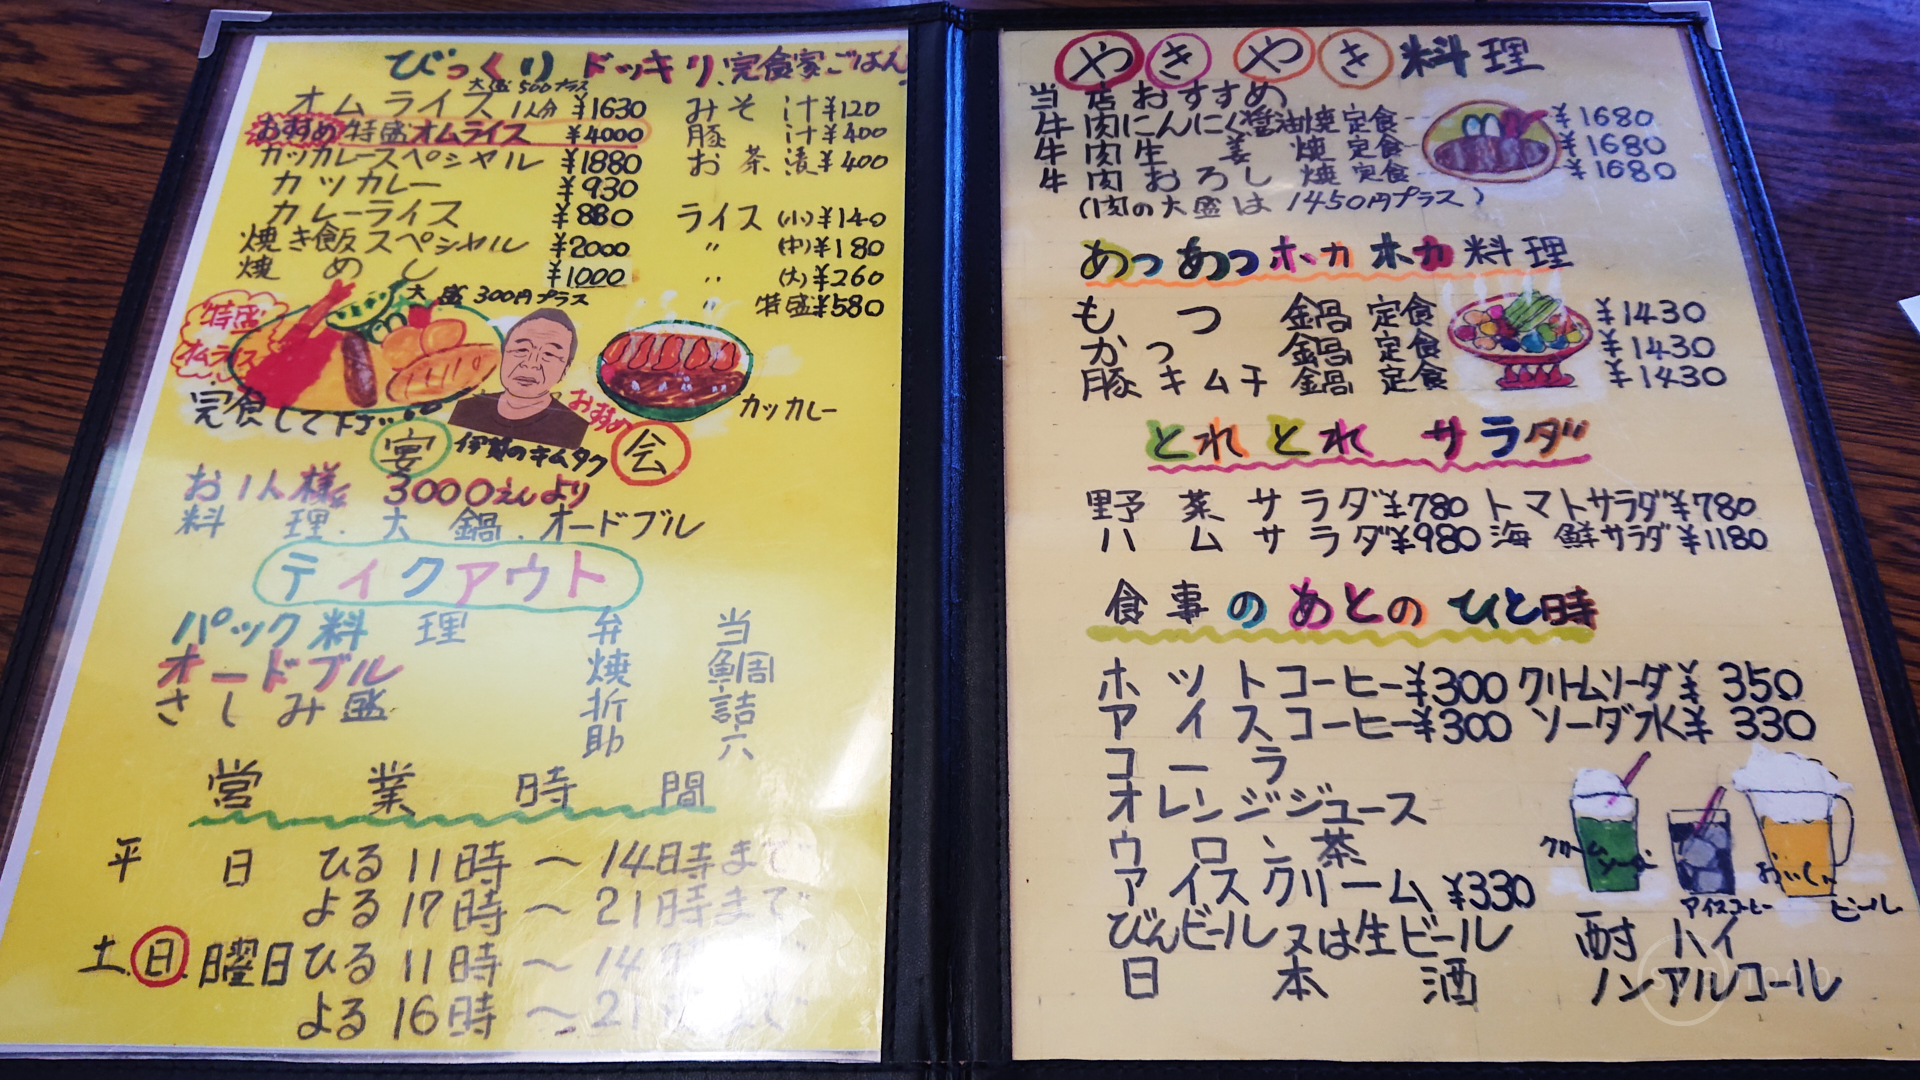 びっくりドッキリ、完食家ごはん!
大盛500プラス
オムライス 1人分 ¥1630
おすすめ 特盛オムライス ¥4000
カツカレースペシャル ¥1880
カツカレー ¥930
カレーライス ¥880
焼き飯スペシャル ¥2000
焼めし ¥1000
大盛300円プラス
みそ汁 ¥120
豚汁 ¥400
お茶漬 ¥400
ライス (小) ¥140
〃 (中) ¥180
〃 (大) ¥260
〃 特盛 ¥580
特盛
オムライス
完食して下さい
伊賀のキムタク
おすすめ
カツカレー
宴会
お1人様 3000えんより
料理.大鍋.オードブル
テイクアウト
パック料理
オードブル
さしみ盛
弁当
焼鯛
折詰
助六
営業時間
平日 ひる11時〜14時まで
よる17時〜21時まで
土.日.曜日 ひる11時〜14
よる16時〜21
やきやき料理
当店おすすめ
牛肉にんにく醤油焼定食 ¥1680
牛肉生姜焼定食 ¥1680
牛肉おろし焼定食 ¥1680
(肉の大盛は1450円プラス)
あつあつホカホカ料理
もつ鍋定食 ¥1430
かつ鍋定食 ¥1430
豚キムチ鍋定食 ¥1430
とれとれサラダ
野菜サラダ ¥780 トマトサラダ ¥780
ハムサラダ ¥980 海鮮サラダ ¥1180
食事のあとのひと時
ホットコーヒー ¥300 クリームソーダ ¥350
アイスコーヒー ¥300 ソーダ水 ¥330
コーラ
オレンジジュース
ウーロン茶
アイスクリーム ¥330
びんビール又は生ビール 酎ハイ
日本酒 ノンアルコール
クリームソーダ
アイスコーヒー
おいしいビール